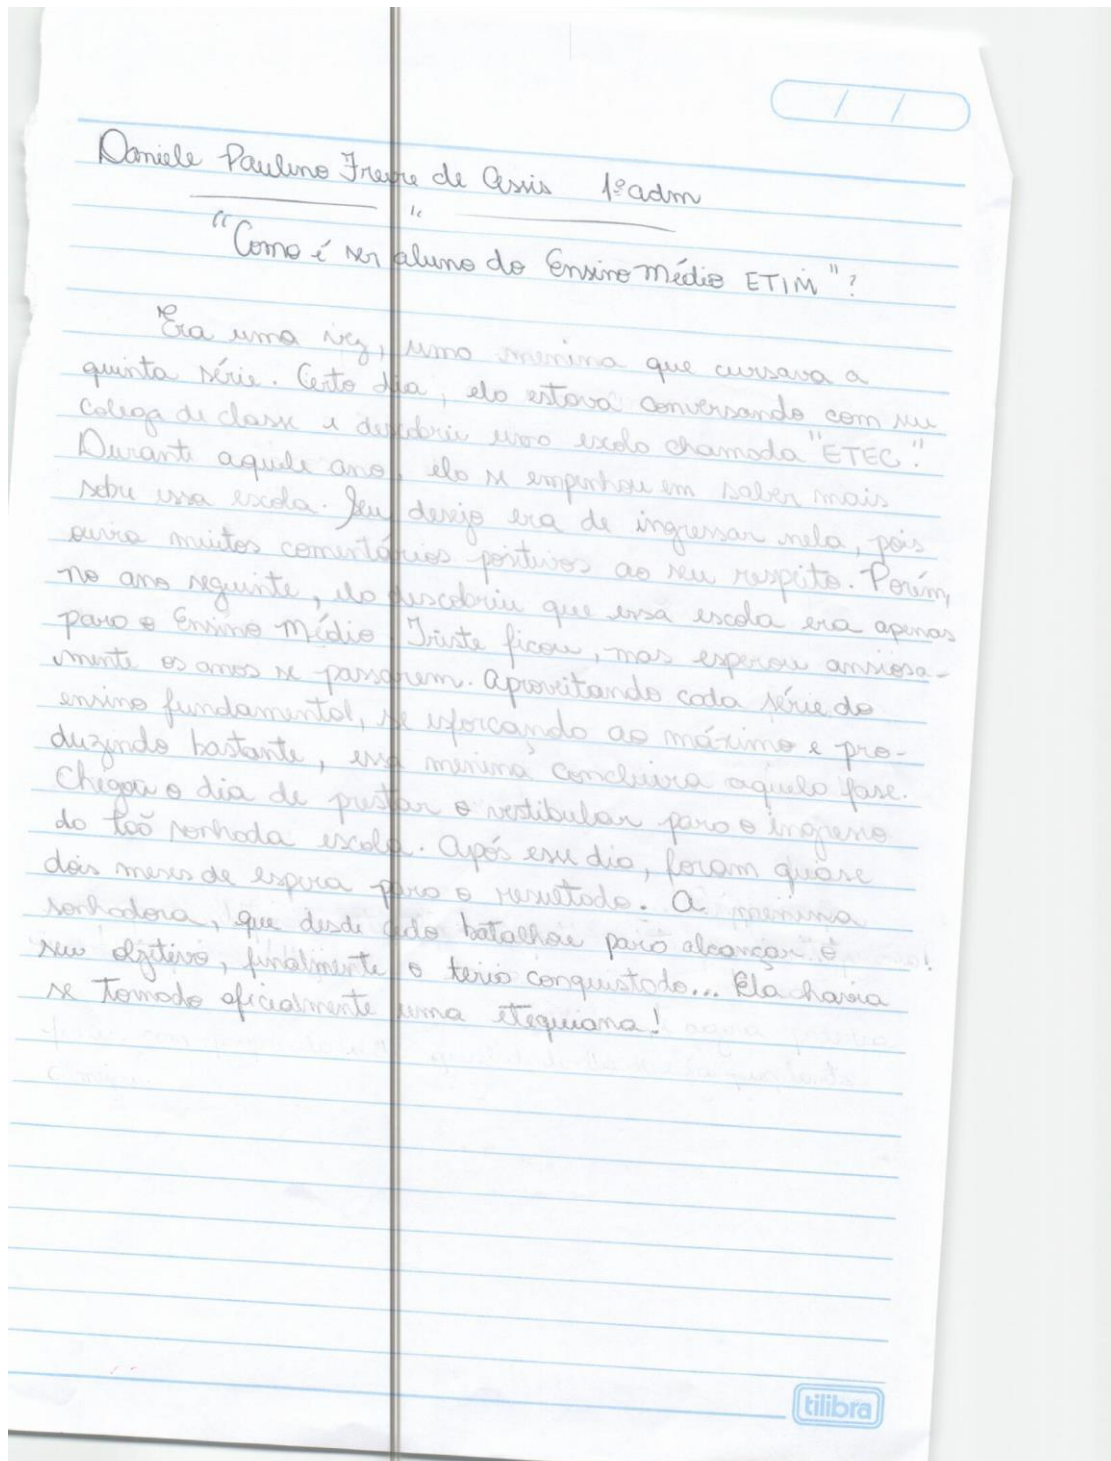 Daniele Paulino Freire de Assis 1º adm
"Como é ser aluno do Ensino Médio ETIM"?
Era uma vez, uma menina que cursava a
quinta série. Certo dia, ela estava conversando com seu
colega de classe e descobriu uma escola chamada "ETEC".
Durante aquele ano, ela se empenhou em saber mais
sobre essa escola. Seu desejo era de ingressar nela, pois
ouvia muitos comentários positivos ao seu respeito. Porém,
no ano seguinte, ela descobriu que essa escola era apenas
para o Ensino Médio. Triste ficou, mas esperou ansiosa-
mente os anos se passarem. Aproveitando cada série do
ensino fundamental, se esforçando ao máximo e pro-
duzindo bastante, essa menina concluira aquela fase.
Chegou o dia de prestar o vestibular para o ingresso
da tão sonhada escola. Após esse dia, foram quase
dois meses de espera para o resultado. A menina
sonhadora, que desde cedo batalhou para alcançar o
seu objetivo, finalmente o teria conquistado... Ela havia
se tornado oficialmente uma etequiana!
tilibra